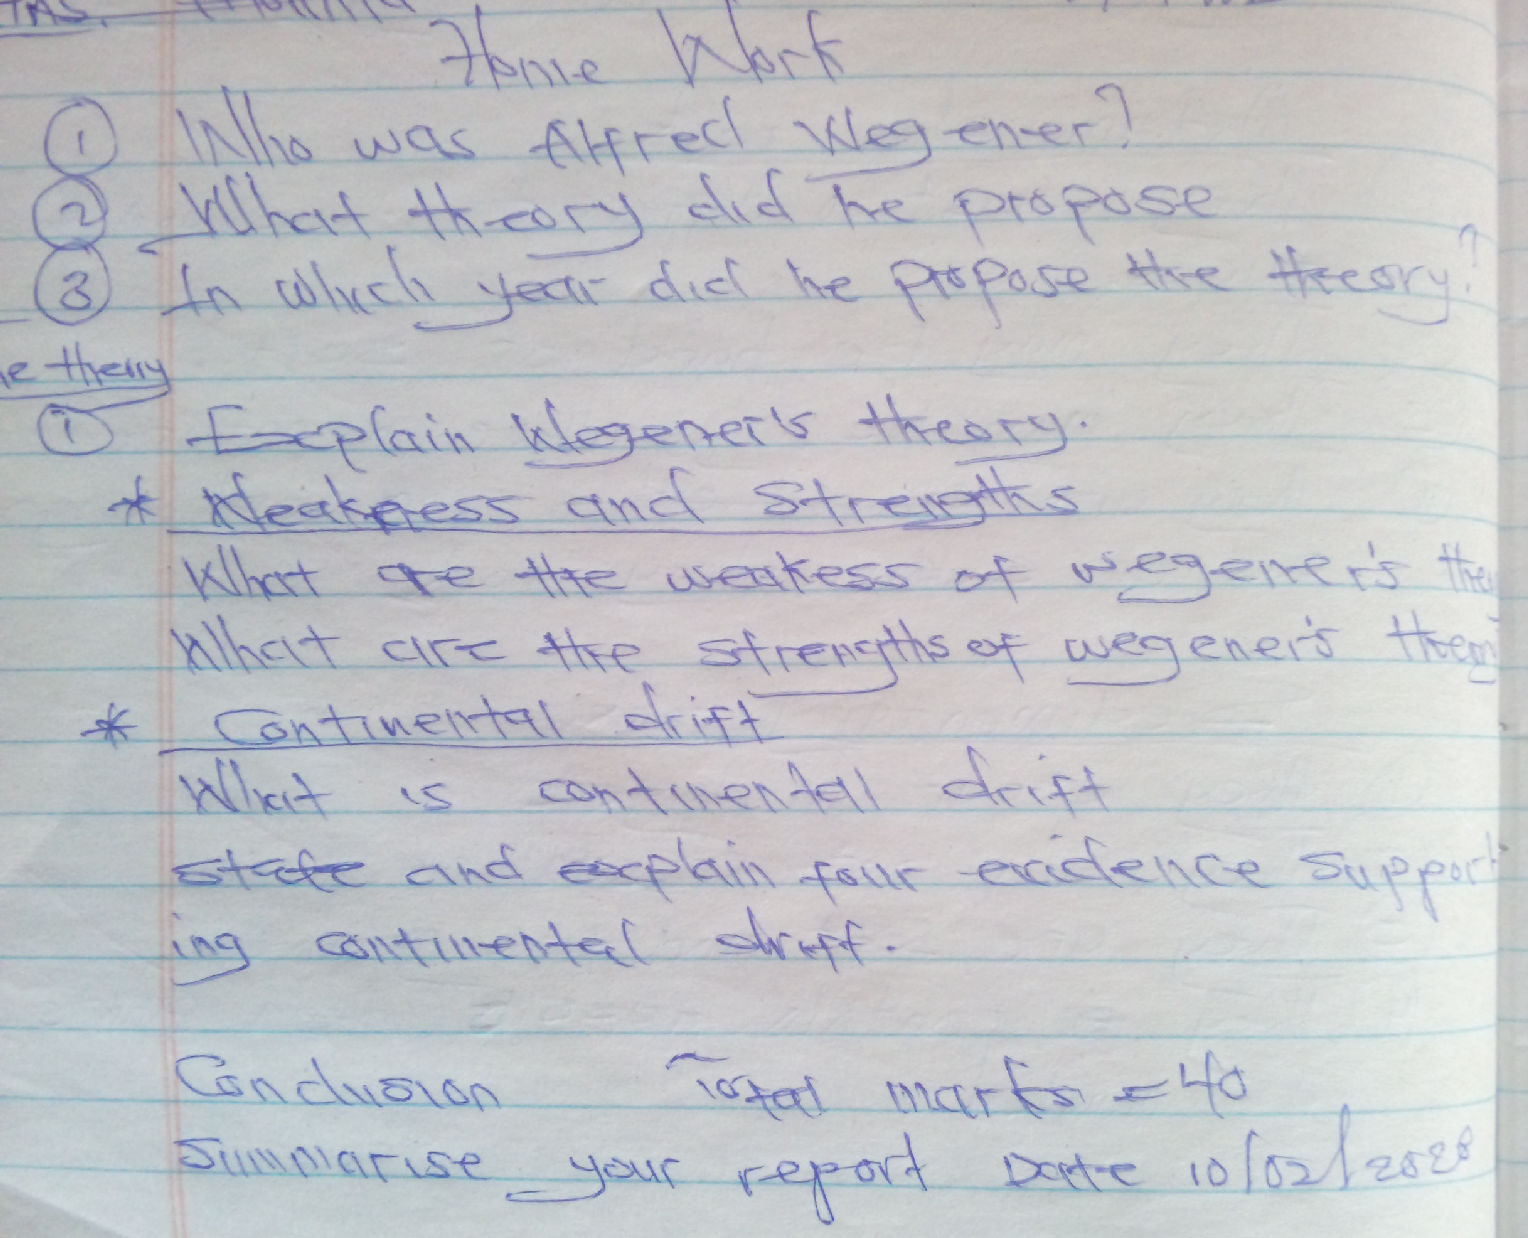 Home Work
① Who was Alfred Wegener?
② What theory did he propose
③ In which year did he propose the theory?
theory
① Explain Wegener's theory.
* Weakness and Strengths
What are the weakess of wegener's
What are the strengths of wegener's
* Continental drift
What is continental drift
state and explain four evidence support
ing continental drift.
Conclusion Total marks = 40
Summarise your report Date 10/02/2028